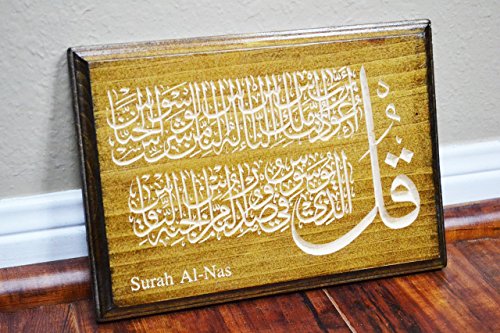 قُل
أعوذ برب الناس ملك الناس إله الناس من شر الوسواس الخناس
الذي يوسوس في صدور الناس من الجنة والناس
Surah Al-Nas